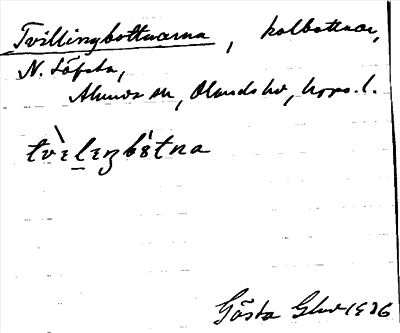 Tvillingbottnarna, kolbottnar,
N. Löfsta,
Alunda sn, Olands hd, Upps. l.
tvèleŋbòtna
Gösta Glad 1936